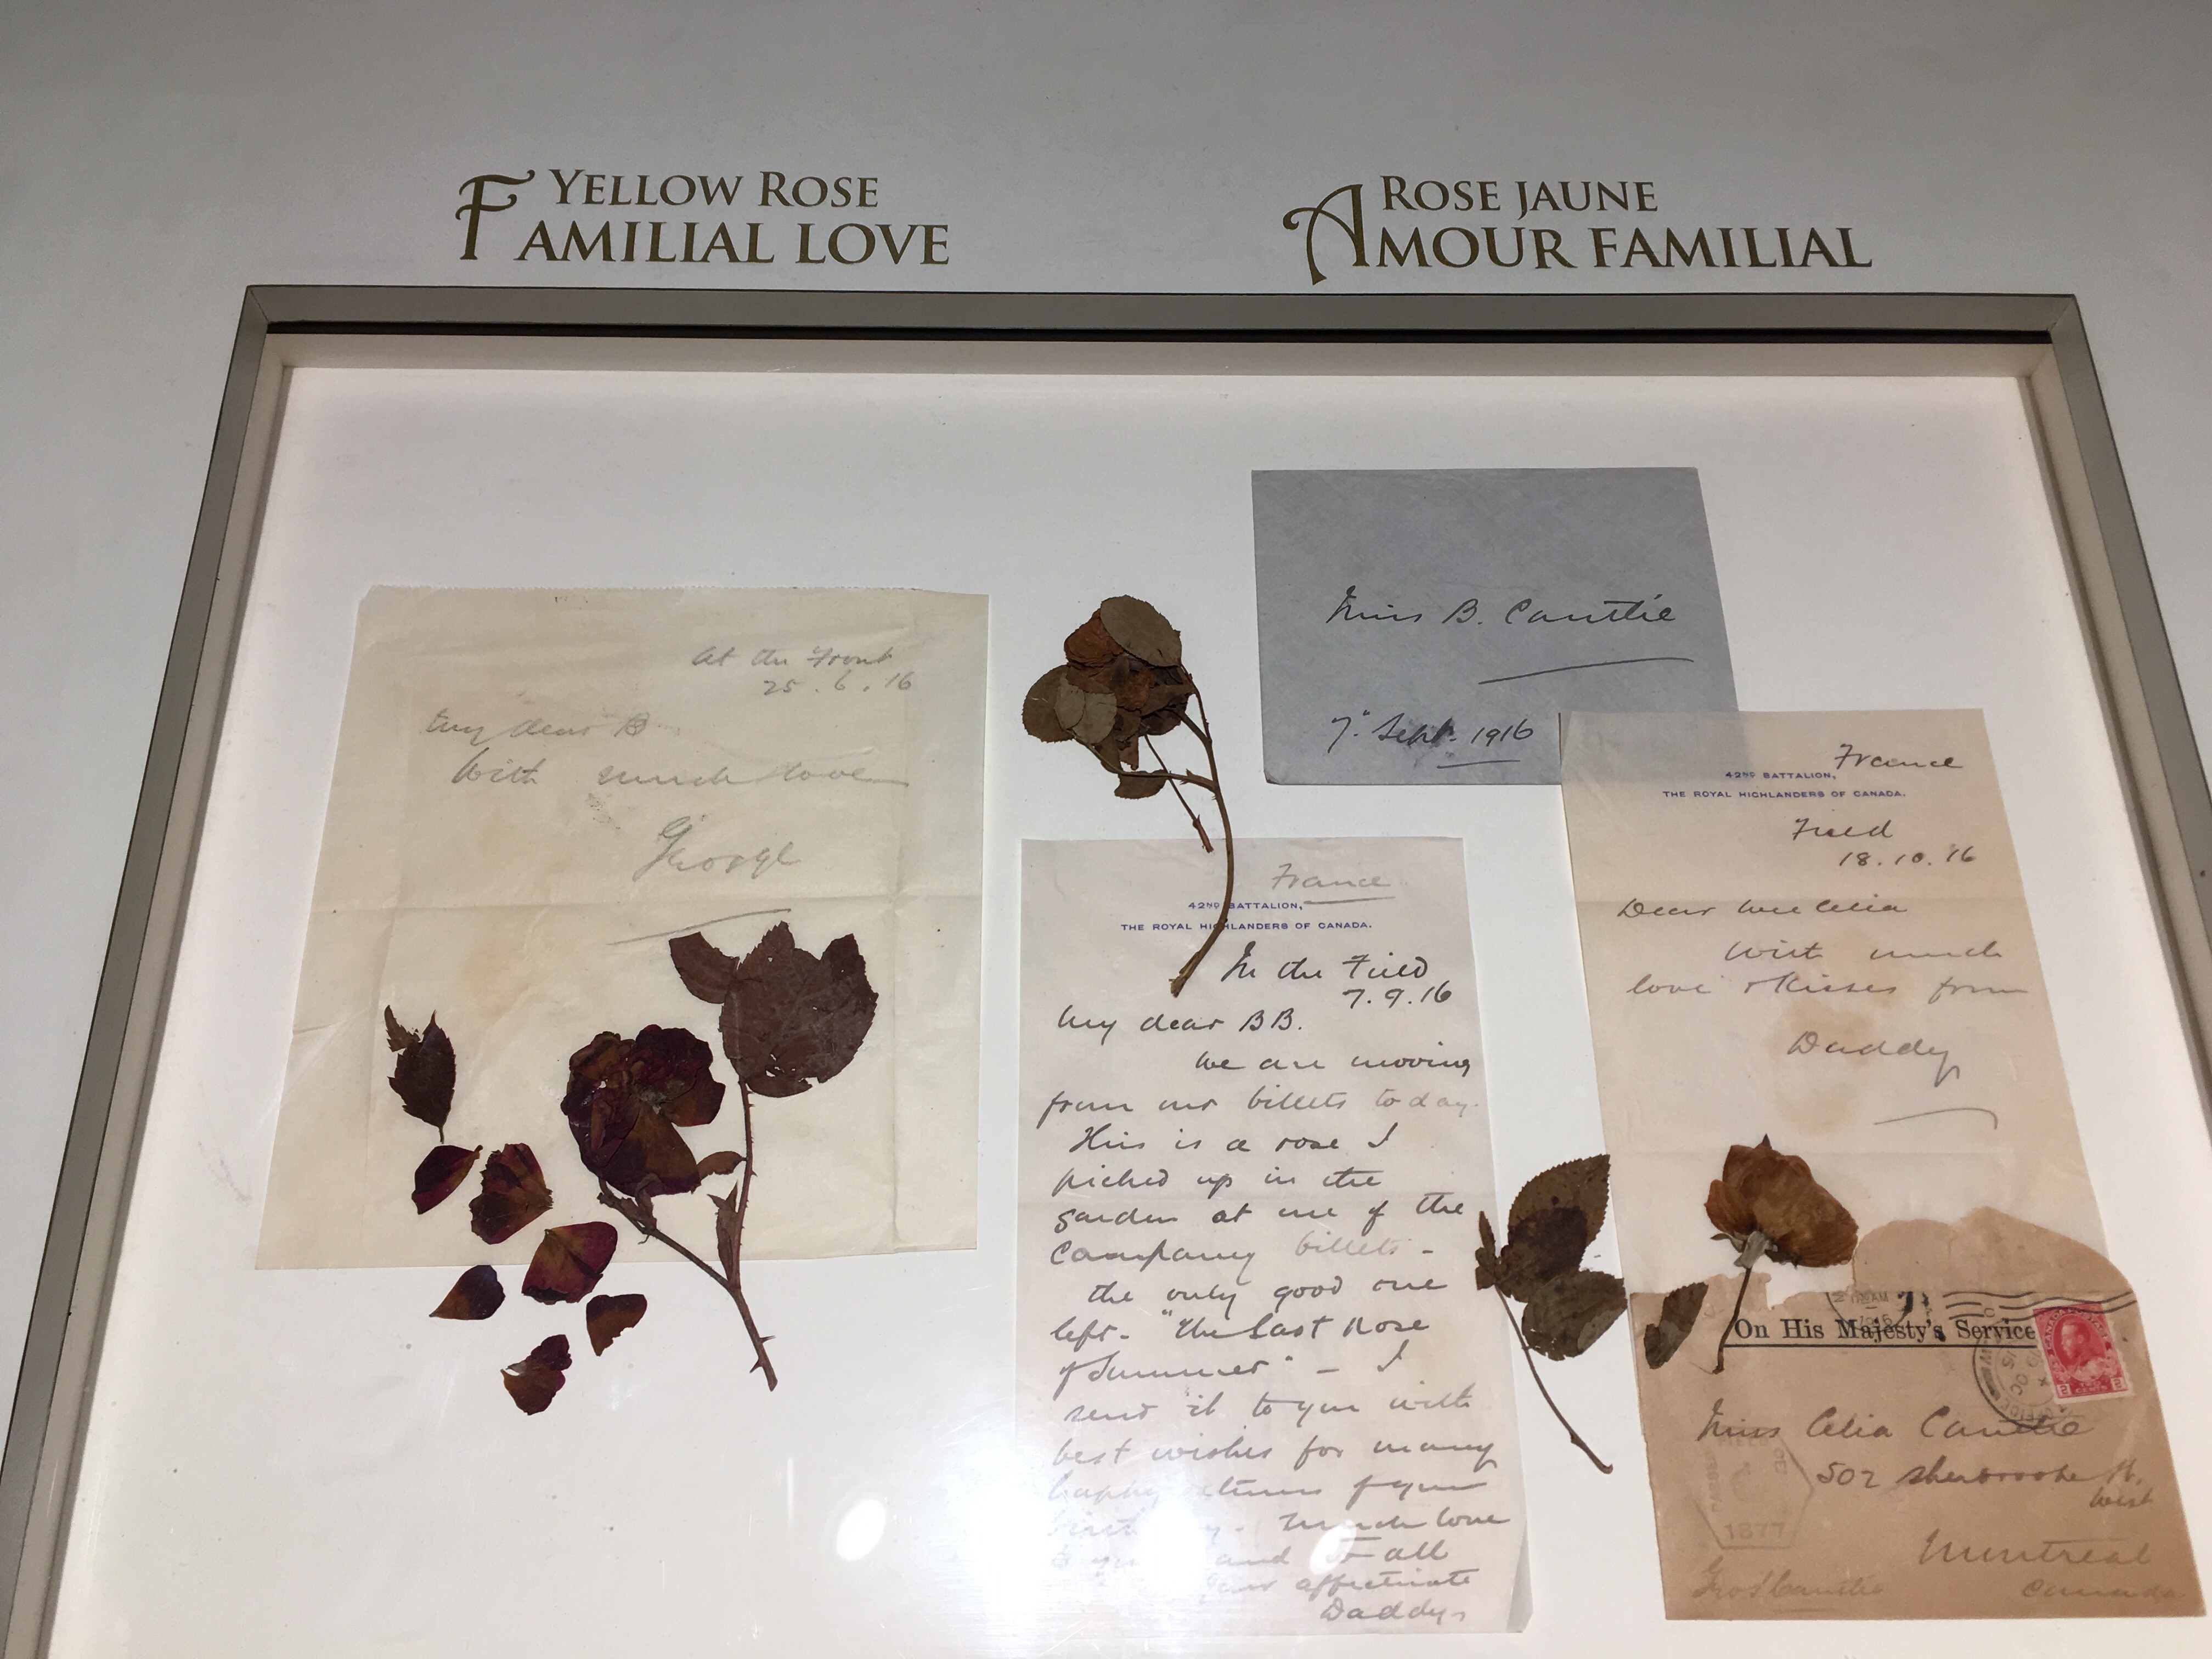 YELLOW ROSE
FAMILIAL LOVE
ROSE JAUNE
AMOUR FAMILIAL
At the Front
25.6.16
My dear B
With much love
George
Miss B. Cantlie
7" Sept. 1916
France
42ND BATTALION,
THE ROYAL HIGHLANDERS OF CANADA.
In the Field
7.9.16
My dear BB.
We are moving
from our billets today.
This is a rose I
picked up in the
garden at one of the
Company billets -
the only good one
left. "The Last Rose
of Summer" - I
send it to you with
best wishes for many
happy returns of your
birthday. Much love
to you and to all
Your affectionate
Daddy.
France
42ND BATTALION,
THE ROYAL HIGHLANDERS OF CANADA.
Field
18.10.16
Dear Wee Celia
With much
love & kisses from
Daddy
On His Majesty's Service
Miss Celia Cantlie
502 Sherbrooke St.
West
Montreal
Canada
1877
Geo S Cantlie